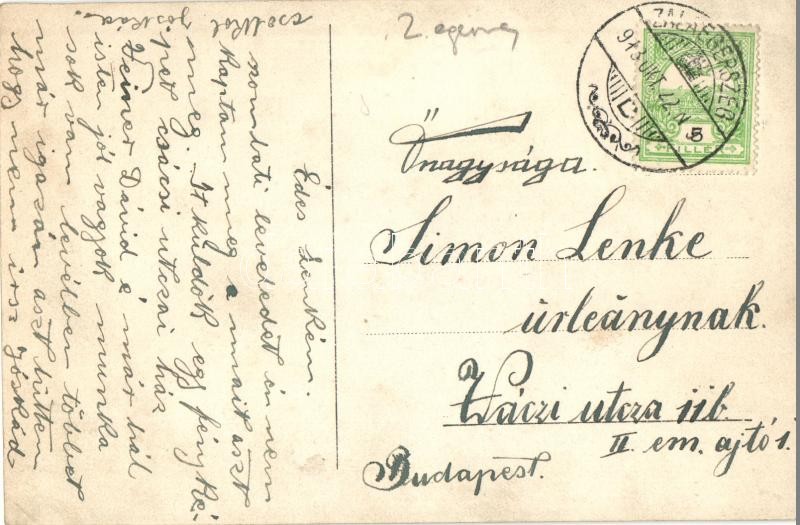 Z. egerszeg
ZALAEGERSZEG
913 OKT. 22. N
5
FILLÉR
Őnagysága.
Simon Lenke
úrleánynak.
Váczi utcza 11b.
II. em. ajtó 1.
Budapest.
Édes Lenkém.
szombati leveledet én nem
kaptam meg a mait aszt
meg. Itt küldök egy fényké-
pet csácsi utczai ház
Veiner Dávid é már hál
isten jól vagyok munka
sok van levélben többet
már igasán aszt hittem
hogy nem irsz Jóskád
csolkol Jóskád.